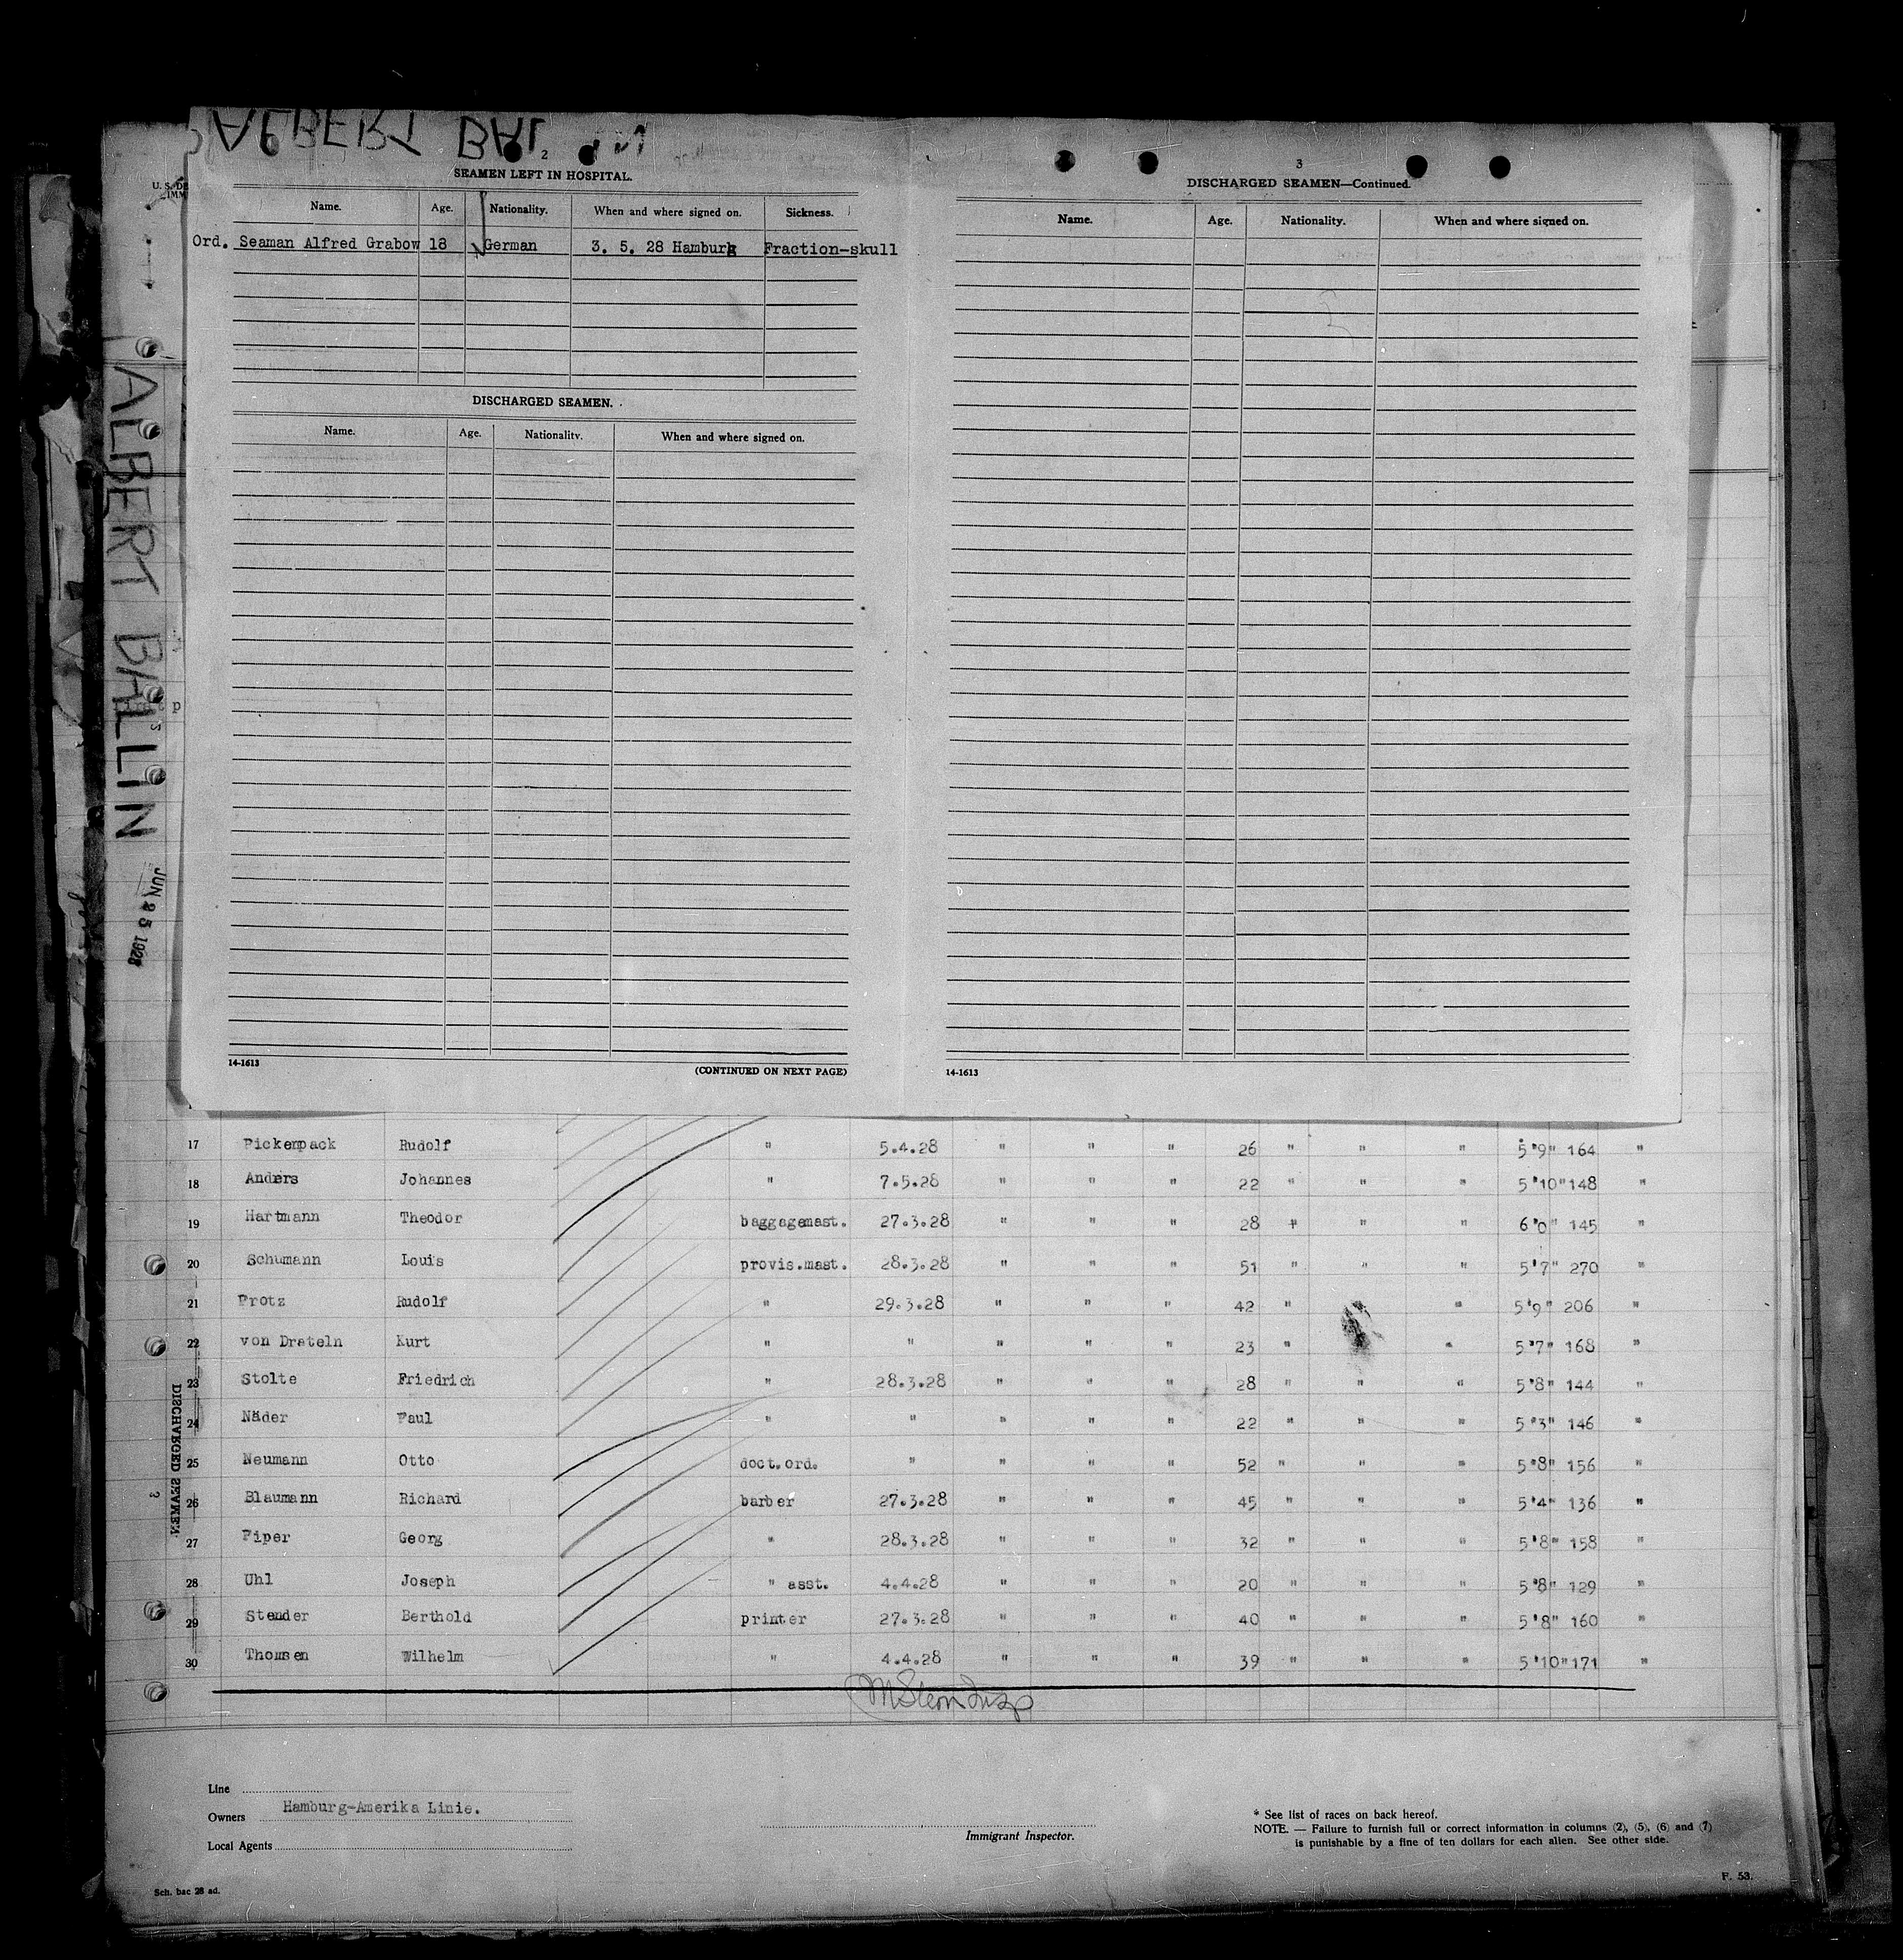 ALBERT BAL IN
2
SEAMEN LEFT IN HOSPITAL.
Name. Age. Nationality. When and where signed on. Sickness.
Ord. Seaman Alfred Grabow 18 German 3. 5. 28 Hamburg Fraction-skull
DISCHARGED SEAMEN.
Name. Age. Nationality. When and where signed on.
14-1613
(CONTINUED ON NEXT PAGE)
3
DISCHARGED SEAMEN—Continued.
Name. Age. Nationality. When and where signed on.
14-1613
U. S. DE
IMM
ALBERT BALLIN
JUN 25 1928
DISCHARGED SEAMEN
17 Pickenpack Rudolf " 5.4.28 " " " 26 " " " 5'9" 164 "
18 Anders Johannes " 7.5.28 " " " 22 " " " 5'10" 148 "
19 Hartmann Theodor baggagemast. 27.3.28 " " " 28 " " " 6'0" 145 "
20 Schumann Louis provis.mast. 28.3.28 " " " 51 " " " 5'7" 270 "
21 Protz Rudolf " 29.3.28 " " " 42 " " 5'9" 206 "
22 von Drateln Kurt " " " " " 23 " " " 5'7" 168 "
23 Stolte Friedrich " 28.3.28 " " " 28 " " " 5'8" 144 "
24 Näder Paul " " " " " 22 " " " 5'3" 146 "
25 Neumann Otto doct.ord. " " " " 52 " " " 5'8" 156 "
26 Blaumann Richard barber 27.3.28 " " " 45 " " " 5'4" 136 "
27 Piper Georg " 28.3.28 " " " 32 " " " 5'8" 158 "
28 Uhl Joseph " asst. 4.4.28 " " " 20 " " " 5'8" 129 "
29 Stender Berthold printer 27.3.28 " " " 40 " " " 5'8" 160 "
30 Thomsen Wilhelm " 4.4.28 " " " 39 " " " 5'10" 171 "
Line
Owners Hamburg-Amerika Linie.
Local Agents
Immigrant Inspector.
* See list of races on back hereof.
NOTE. — Failure to furnish full or correct information in columns (2), (5), (6) and (7)
is punishable by a fine of ten dollars for each alien. See other side.
Sch. bac 28 ad.
F. 53.